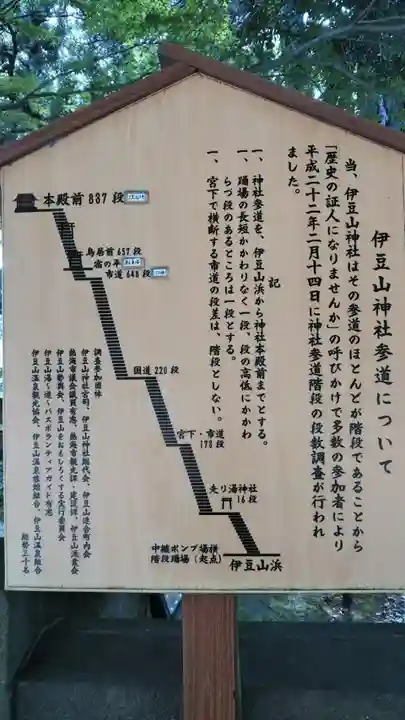 伊豆山神社参道について
当、伊豆山神社はその参道のほとんどが階段であることから
「歴史の証人になりませんか」の呼びかけで多数の参加者により
平成二十二年二月十四日に神社参道階段の段数調査が行われ
ました。
記
一、神社参道を、伊豆山浜から神社本殿前までとする。
一、踊場の長短かかわりなく一段、段の高低にかかわ
らづ段のあるところは一段とする。
一、宮下で横断する市道の段差は、階段としない。
本殿前 837 段
鳥居前 657 段
市道 648 段
国道 220 段
宮下・市道
178 段
走り湯神社
16 段
中継ポンプ場横
階段踊場(起点)
伊豆山浜
調査参加団体
伊豆山神社宮司、伊豆山神社総代会、伊豆山連合町内会
熱海市議会議員有志、熱海市観光課・建設課、伊豆山漁業会
伊豆山勢興会、伊豆山をおもしろくする実行委員会
伊豆山湯~遊~バスボランティアガイド有志
伊豆山温泉観光協会、伊豆山温泉旅館組合、伊豆山温泉組合
総勢三十名